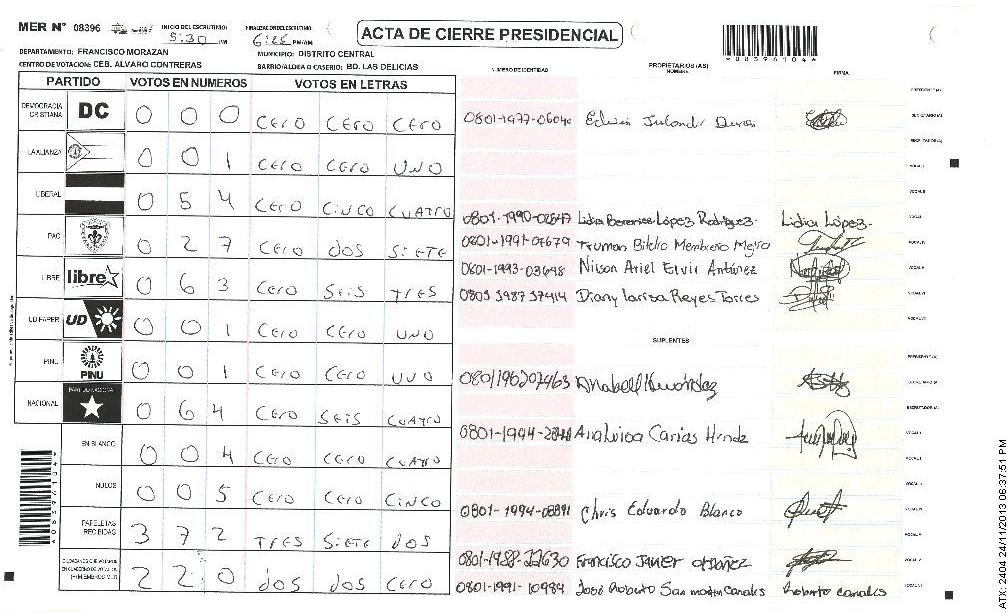 MER N° 08396 INICIO DEL ESCRUTINIO: 5:30 PM FINALIZACION DEL ESCRUTINIO: PM/AM ACTA DE CIERRE PRESIDENCIAL
DEPARTAMENTO: FRANCISCO MORAZAN MUNICIPIO: DISTRITO CENTRAL
CENTRO DE VOTACION: CEB. ALVARO CONTRERAS BARRIO/ALDEA O CASERIO: BO. LAS DELICIAS
NUMERO DE IDENTIDAD PROPIETARIOS (AS) NOMBRE FIRMA
PARTIDO VOTOS EN NUMEROS VOTOS EN LETRAS
DEMOCRACIA CRISTIANA DC 0 0 0 CERO CERO CERO
LA ALIANZA 0 0 1 CERO CERO UNO
LIBERAL 0 5 4 CERO CINCO CUATRO
PAC 0 2 7 CERO DOS SIETE
LIBRE libre 0 6 3 CERO SEIS TRES
UD FAPER UD 0 0 1 CERO CERO UNO
PINU PINU 0 0 1 CERO CERO UNO
NACIONAL PARTIDO NACIONAL 0 6 4 CERO SEIS CUATRO
EN BLANCO 0 0 4 CERO CERO CUATRO
NULOS 0 0 5 CERO CERO CINCO
PAPELETAS RECIBIDAS 3 7 2 TRES SIETE DOS
2 2 0 DOS DOS CERO
Edwin
Lidia Berenice López Rodríguez Lidia López
0801-1991-07679 Truman Biblio Membreño Mejia
0801-1993-03698 Nilson Ariel Elvir Antúnez
Diany Larisa Reyes Torres
SUPLENTES
Anabell Hernández
Ana Luisa Carias Hrndz
Chris Eduardo Blanco
0801-1988-22630 Francisco Javier Ordoñez
0801-1991-10984 José Roberto San martin Canales Roberto canales
ATX 2404 24/11/2013 06:37:51 PM